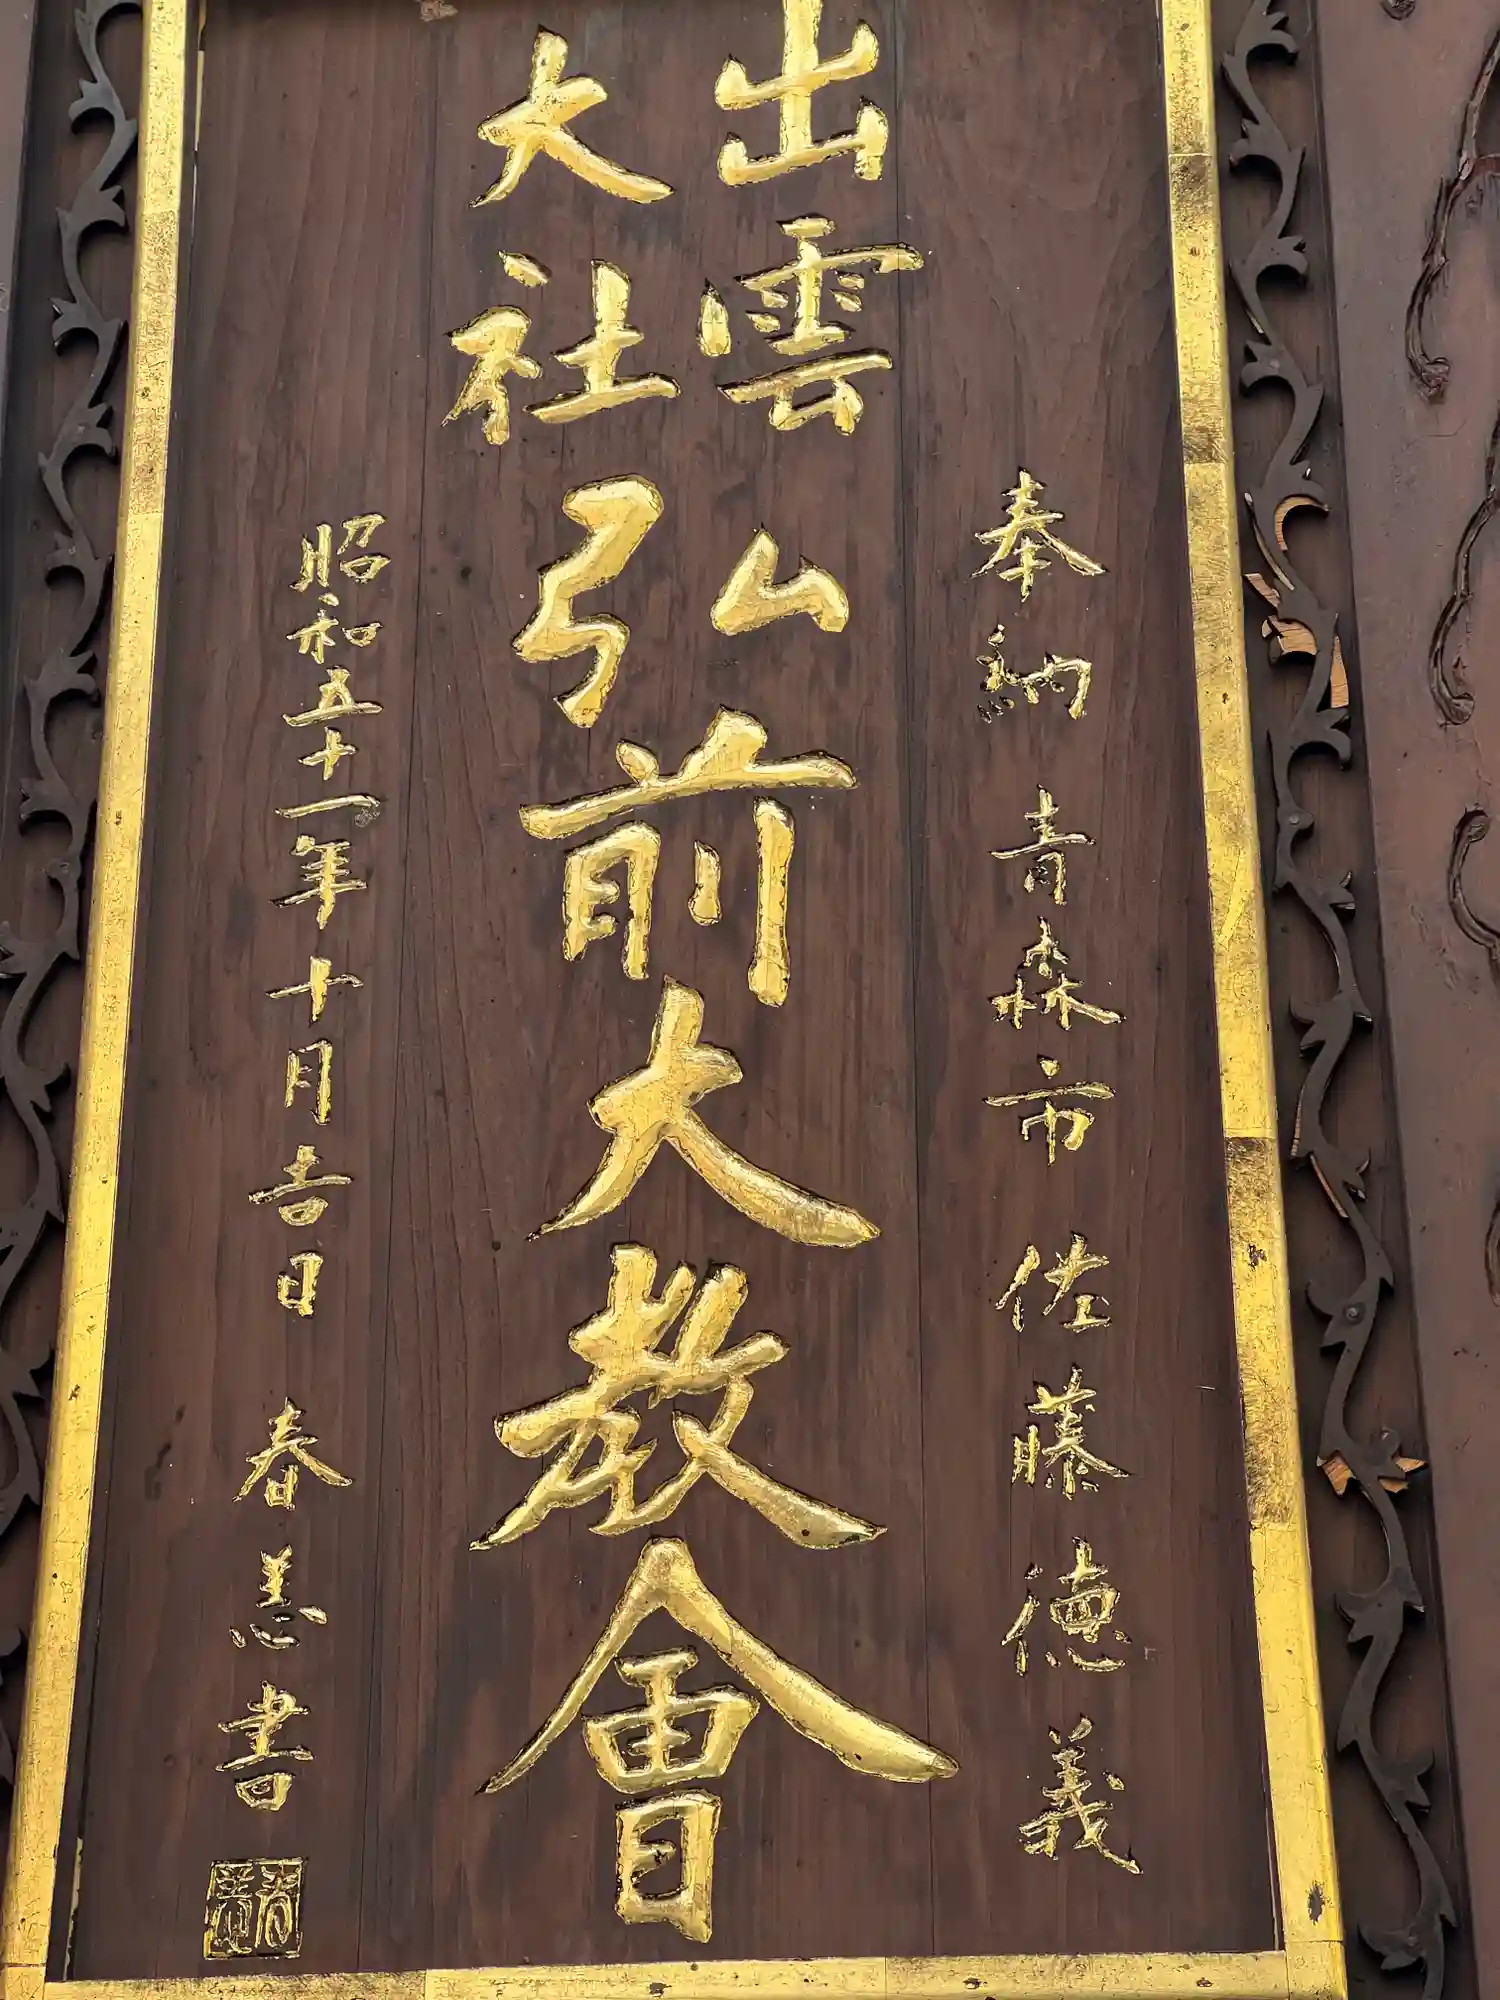 奉納 青森市 佐藤徳義
出雲大社
弘前大教會
昭和五十一年十月吉日 春恙書